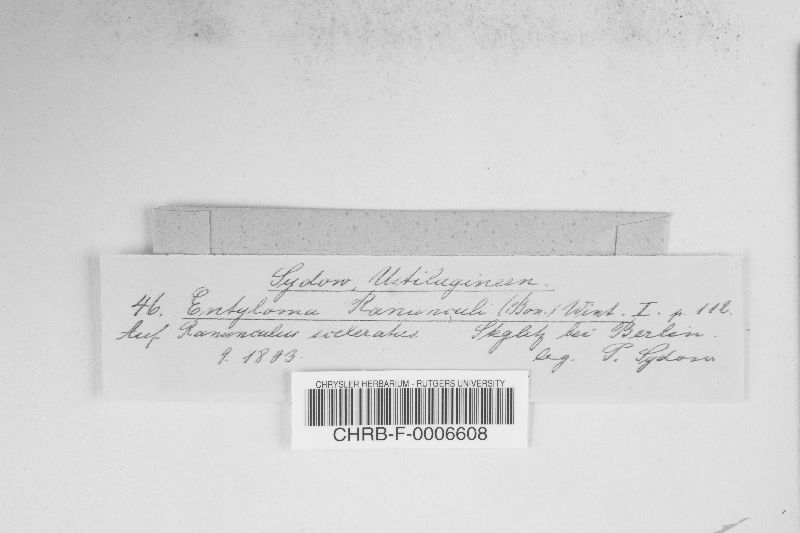 Sydow, Ustilagineen.
46. Entyloma Ranunculi (Bon.) Wint. I. p. 112.
Auf Ranunculus sceleratus. Steglitz bei Berlin.
9. 1893. leg. P. Sydow
CHRYSLER HERBARIUM - RUTGERS UNIVERSITY
CHRB-F-0006608